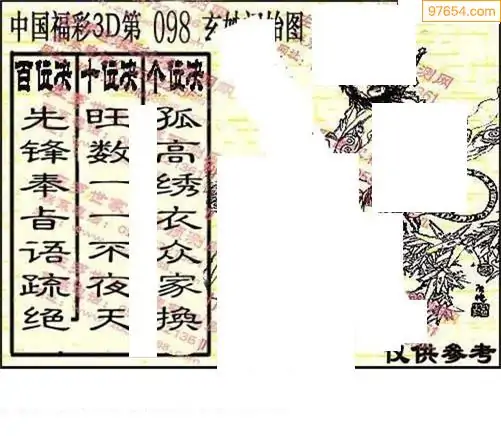 97654.com
中国福彩3D第 098 图
百位决
先锋奉旨语疏绝
十位决
旺数一一不夜天
个位决
孤高绣衣众家换
仅供参考